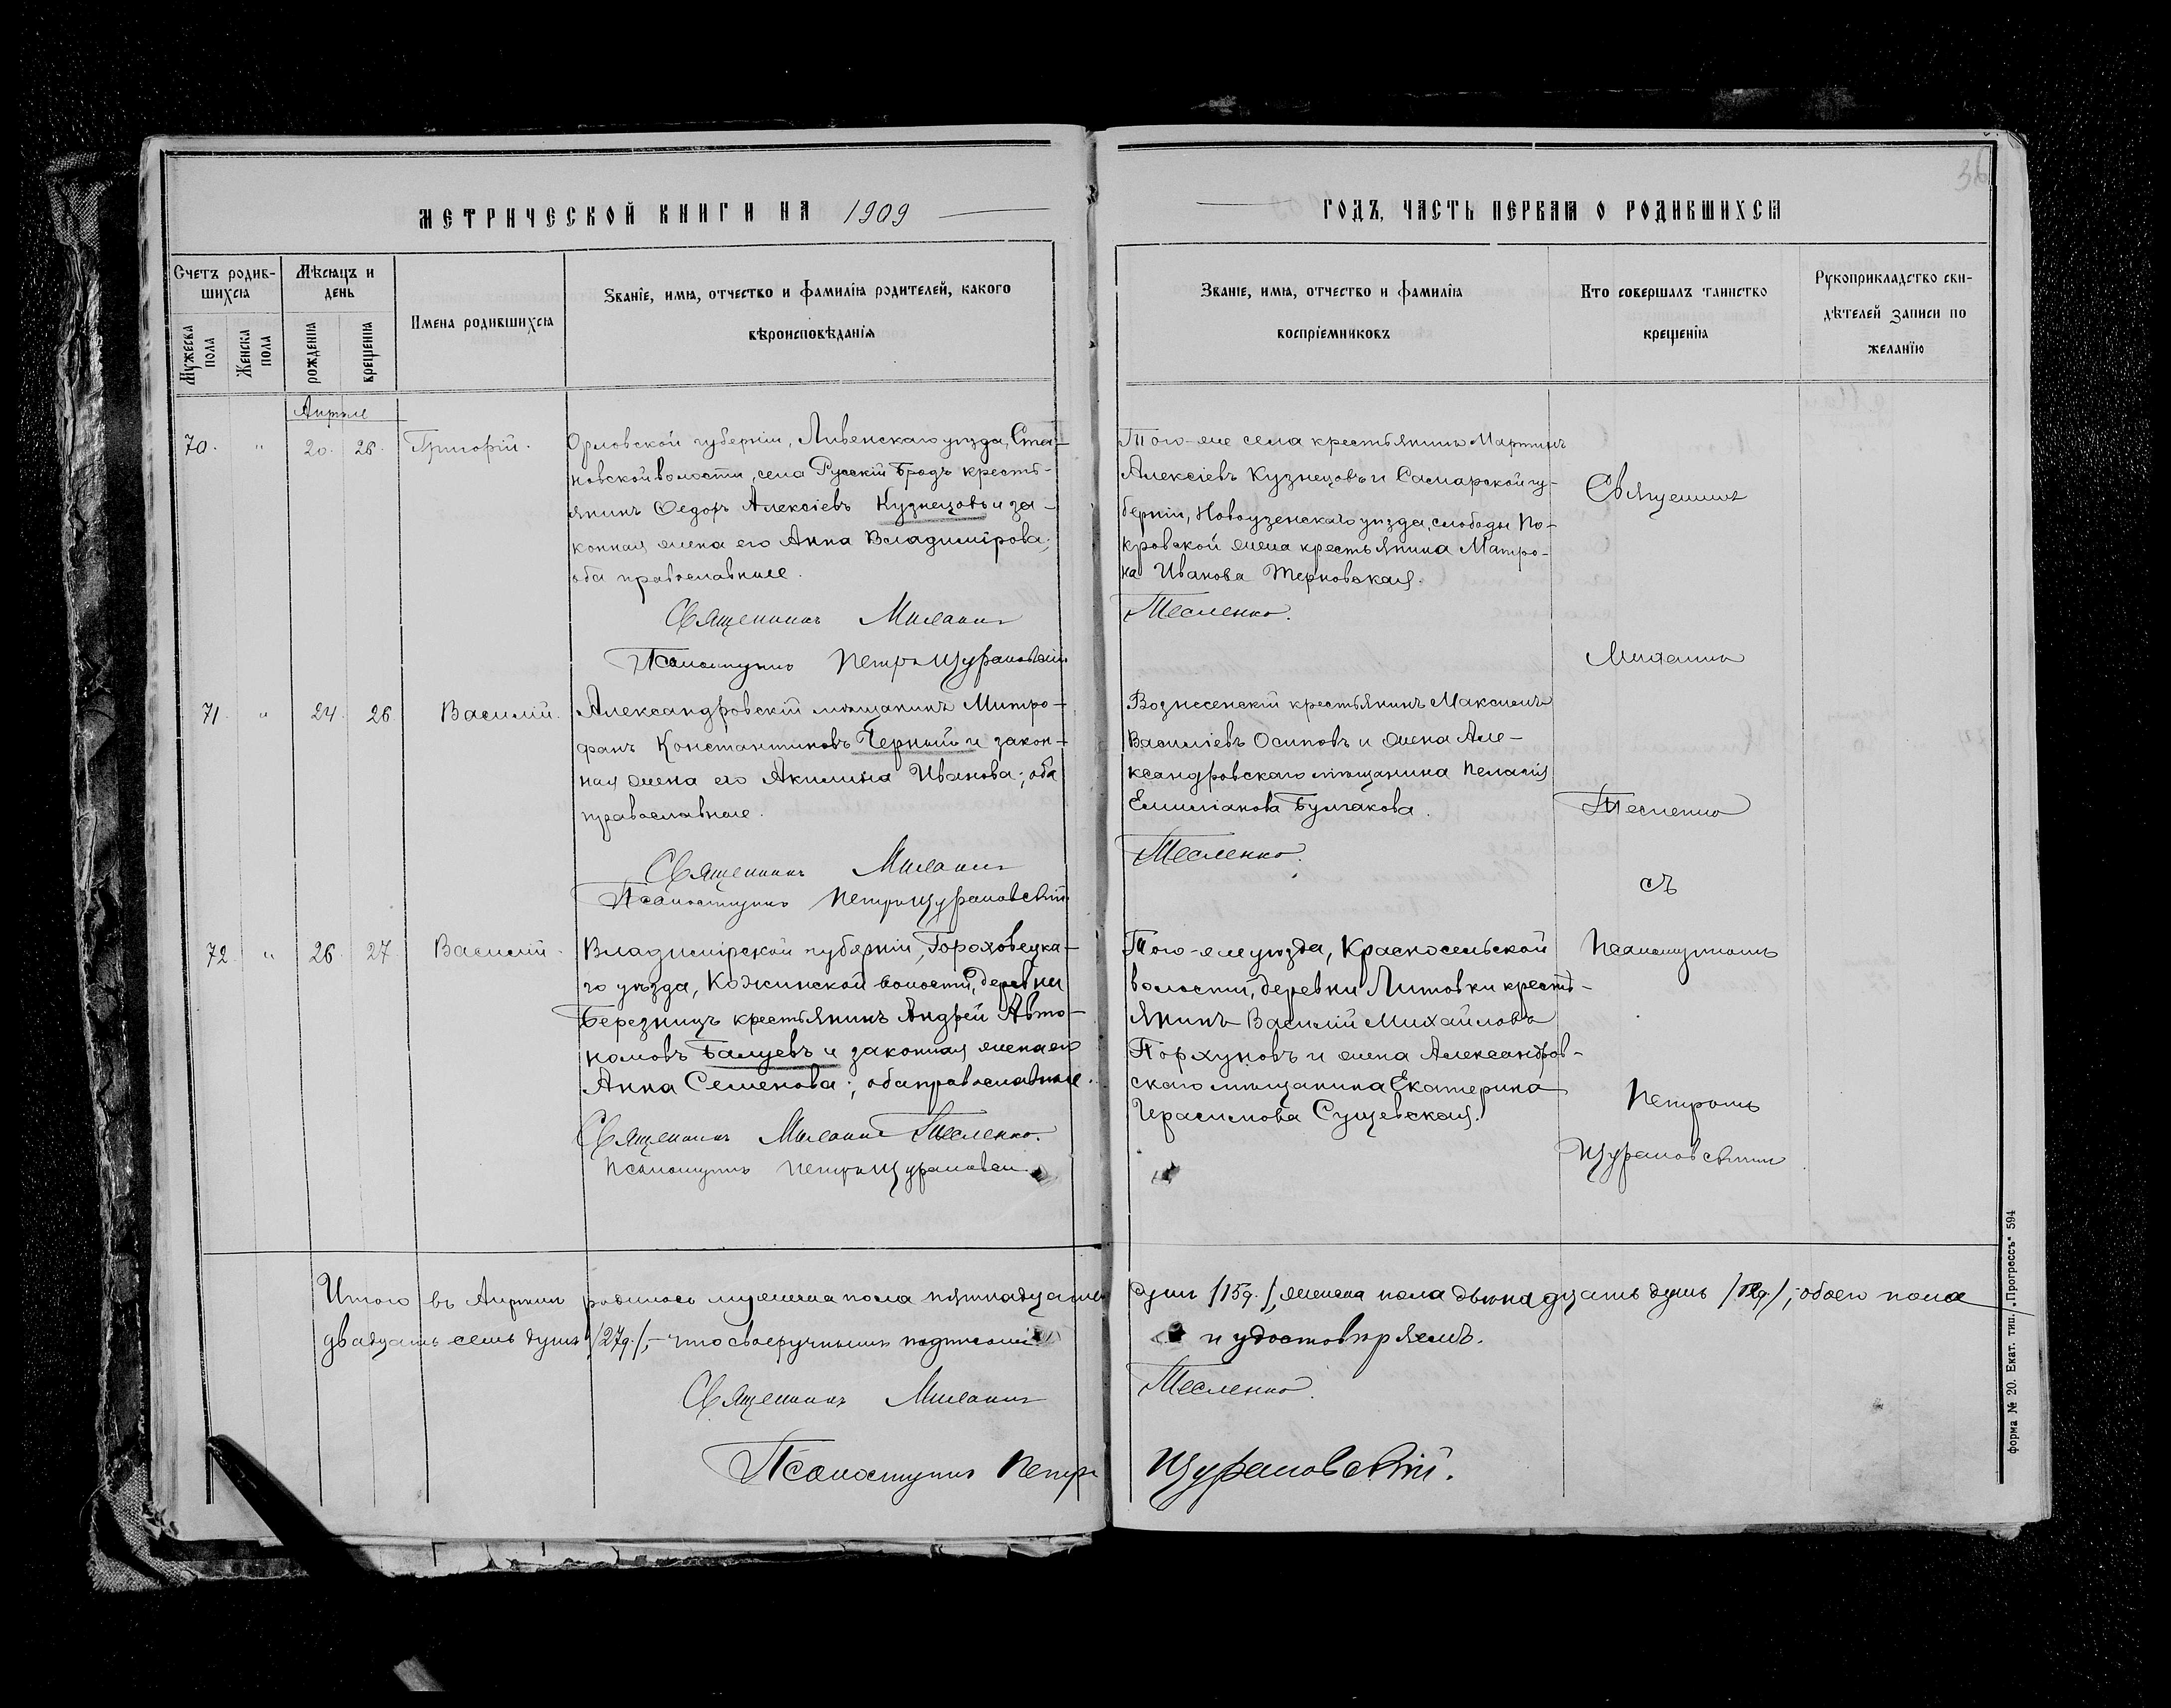 36
МЕТРИЧЕСКОЙ КНИГИ НА 1909
ГОДЪ, ЧАСТЬ ПЕРВАЯ О РОДИВШИХСЯ
Счетъ родив-
шихся
Мужеска пола
Женска пола
Мѣсяцъ и
день
рожденія
крещенія
Имена родившихся
Званіе, имя, отчество и фамилія родителей, какого
вѣроисповѣданія
Званіе, имя, отчество и фамилія
воспріемниковъ
Кто совершалъ таинство
крещенія
Рукоприкладство сви-
дѣтелей записи по
желанію
Апрѣль
70. " 20. 26. Григорій.
Орловской губерніи, Ливенскаго уѣзда, Ста-
новской волости, села Русскій Бродъ кресть-
янинъ Ѳедоръ Алексіевъ Кузнецовъ и за-
конная жена его Анна Владимірова;
оба православные.
Священникъ Михаилъ
Псаломщикъ Петръ Щурановскій
Того-же села крестьянинъ Мартинъ
Алексіевъ Кузнецовъ и Самарской гу-
берніи, Новоузенскаго уѣзда, слободы По-
кровской жена крестьянина Матро-
на Иванова Терновская.
Тесленко.
71. " 24. 26 Василій.
Александровскій мѣщанинъ Митро-
фанъ Константиновъ Черный и закон-
ная жена его Акилина Иванова; оба
православные.
Священникъ Михаилъ
Псаломщикъ Петръ Щурановскій
Вознесенскій крестьянинъ Максимъ
Василіевъ Осиповъ и жена Але-
ксандровскаго мѣщанина Пелагія
Емиліанова Булгакова.
Тесленко.
72. " 26. 27. Василій.
Владимірской губерніи, Гороховецка-
го уѣзда, Кожинской волости, деревни
Березницъ крестьянинъ Андрей Авто-
номовъ Балуевъ и законная жена его
Анна Семенова; оба православные.
Священникъ Михаилъ Тесленко.
Псаломщикъ Петръ Щурановскій
Того-же уѣзда, Красносельской
волости, деревни Литовки кресть-
янинъ Василій Михайловъ
Порхуновъ и жена Александров-
скаго мѣщанина Екатерина
Герасимова Сущевская.
Священникъ
Михаилъ
Тесленко
съ
Псаломщикомъ
Петромъ
Щурановскимъ
Итого въ Апрѣлѣ родилось мужеска пола пятнадцать душъ /15д./, женска пола двѣнадцать душъ /12д./,-обоего пола
двадцать семь душъ /27д./,- что своеручнымъ подписомъ и удостовѣряемъ.
Священникъ Михаилъ Тесленко.
Псаломщикъ Петръ Щурановскій.
форма № 20. Екат. тип. „Прогрессъ“ 594